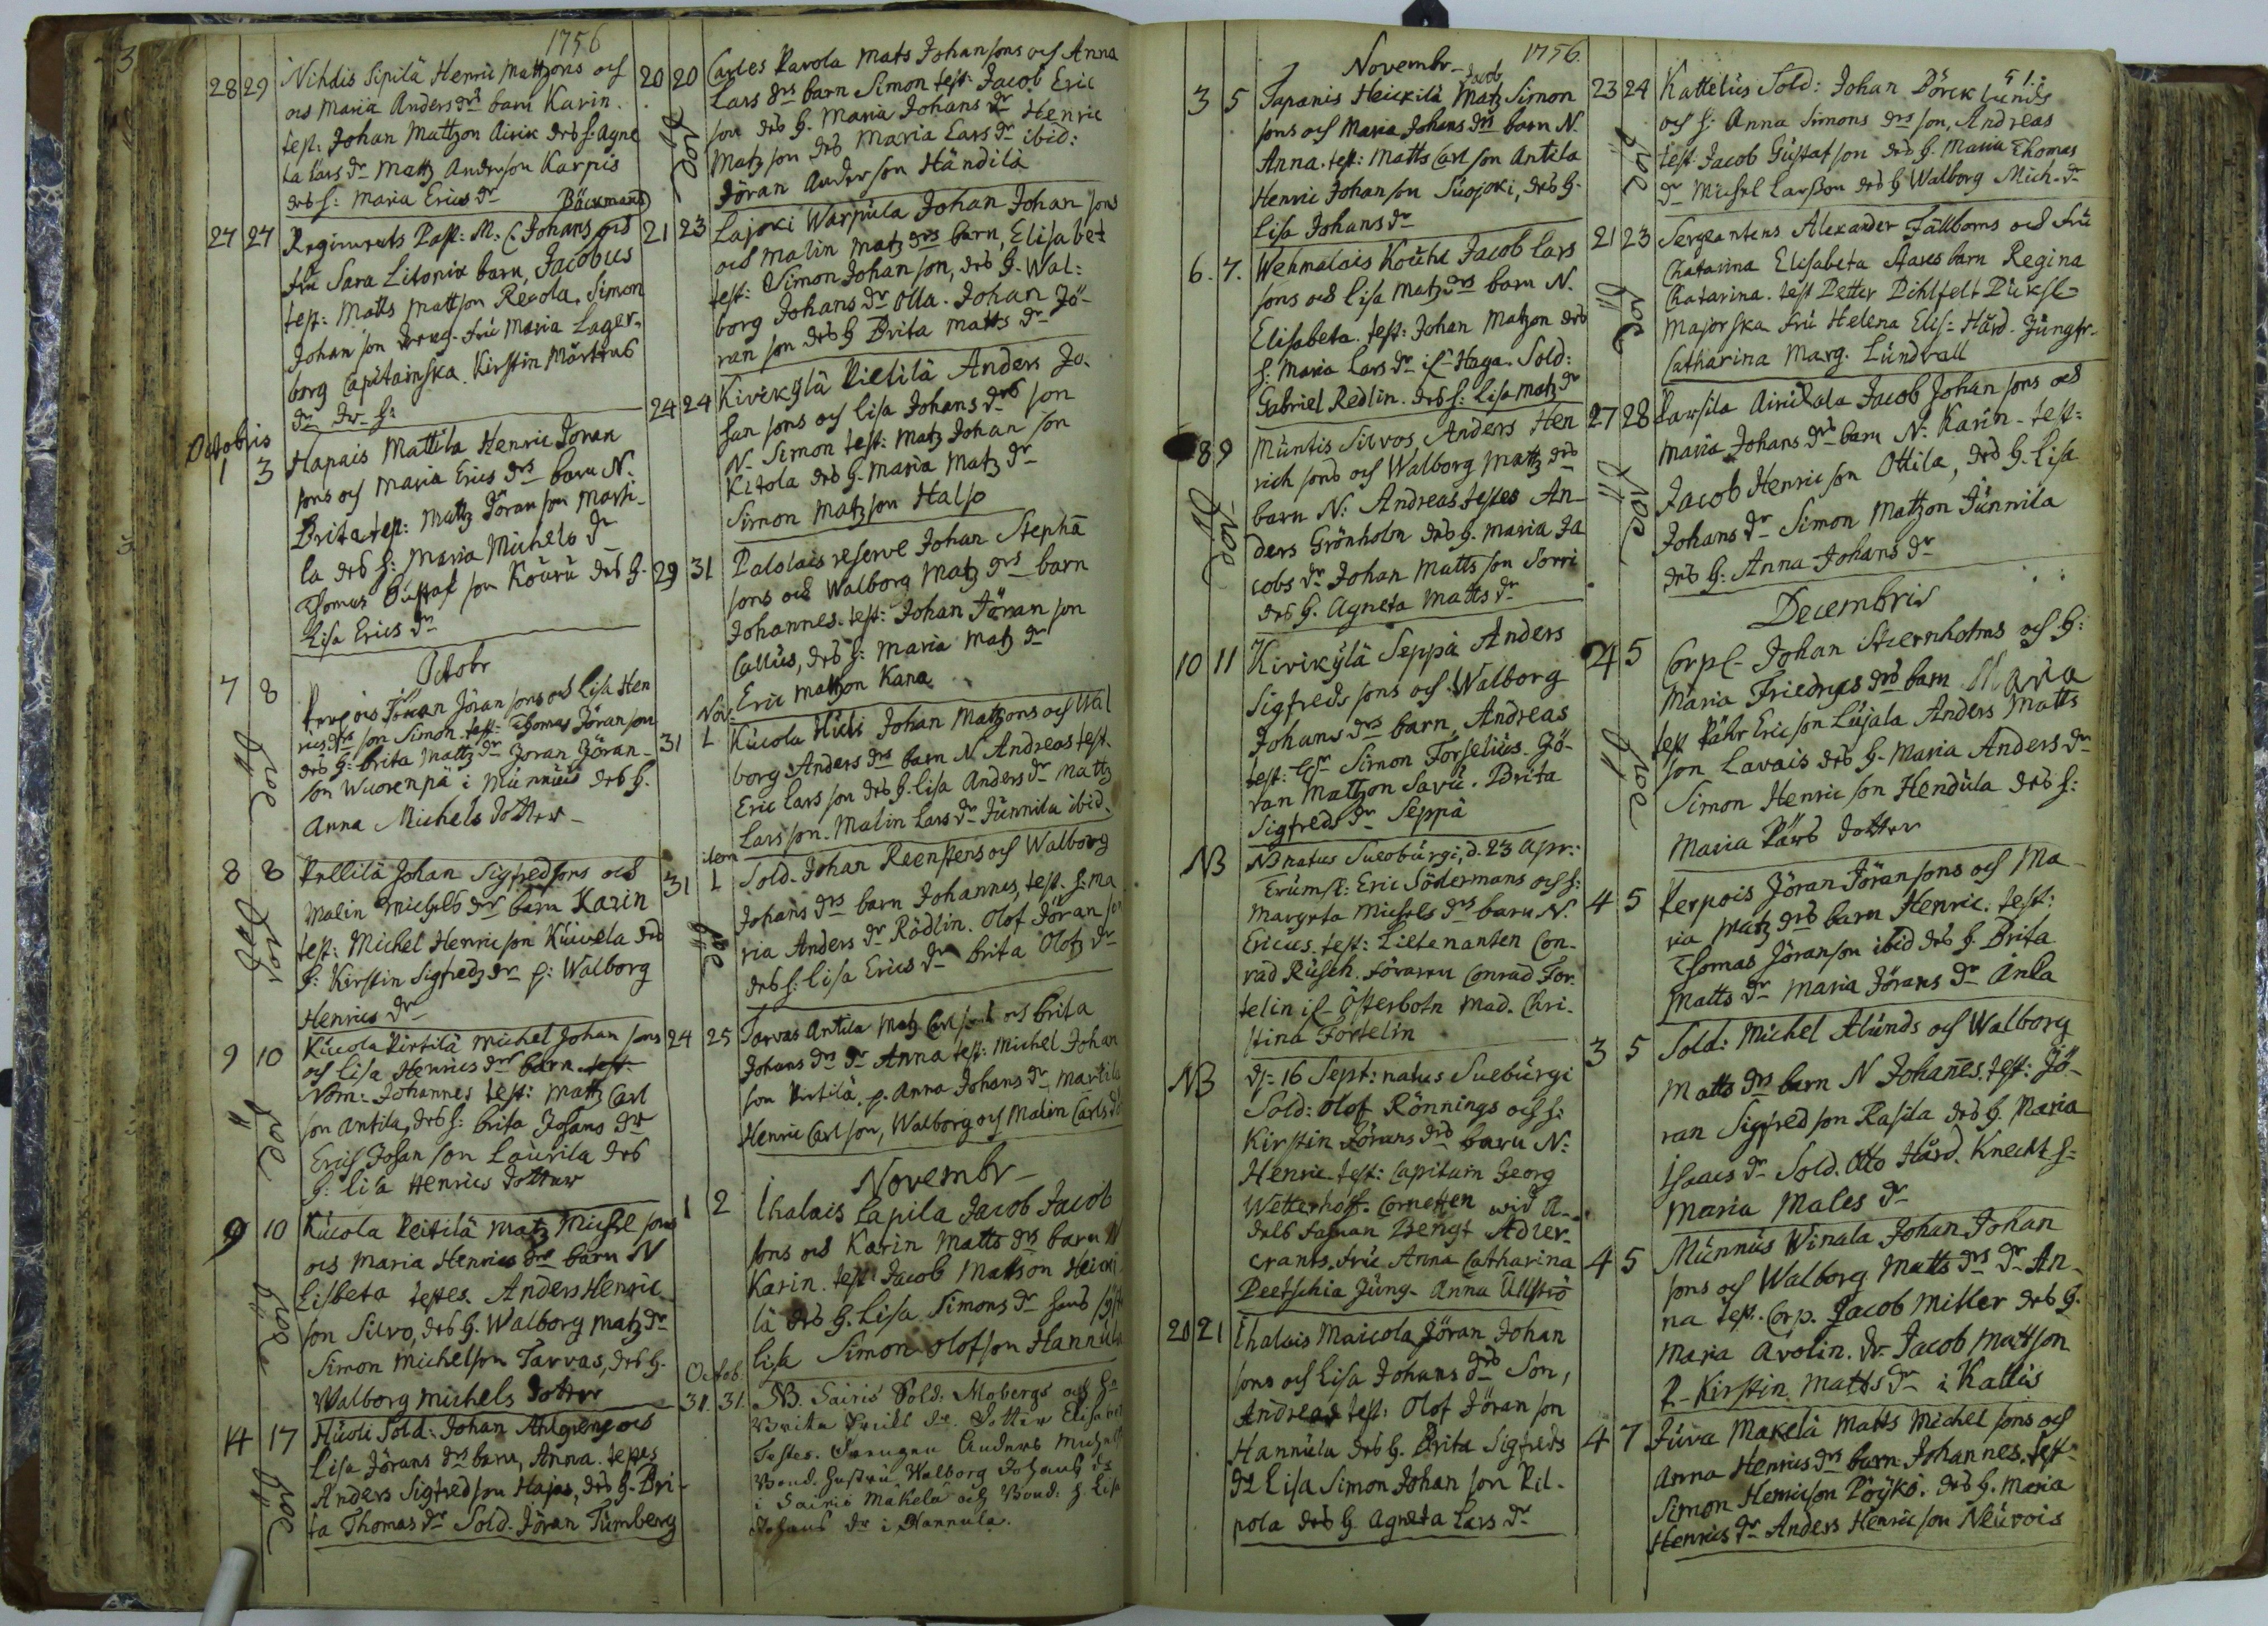 1756
28 29 Nihdis Sipilä Henric Mattzons och
och Maria Anders drs barn Karin.
test: Johan Mattzon Airik drs h: Agne
ta Lars dr Mattz Anderson Karpis
drs h: Maria Erics dr Bäckmans
27 27 Regiments Past: M: C: Johans och
fru Sara Litonia barn, Jacobus
test: Matts Mattson Recola, Simon
Johan son fru Maria Lager-
borg Capitainska. Kirstin Mårtens
dr
Octobris
1 3 Hapais Mattila Henric Jöran
sons och Maria Erics drs barn N.
Brita test: Mattz Jöran son Matti-
la drs h: Maria Michels dr
Thomas Gustaf son Kouru drs h.
Lisa Erics dr
Octobr
7 8 Perpois Jöran sons och Lisa Hen
rics drs son Simon. test: Thomas Jöran son
drs h: Brita Mattz dr Jöran Jöran-
son Wuorenpä i Munnuis drs h.
Anna Michels dotter
8 8 Prellilä Johan Sigfredsons och
Malin Michels drs barn Karin
test: Michel Henric son Kuivela drs
h: Kirstin Sigfredz dr p: Walborg
Henrics dr
9 10 Kuicola Pirtilä Michel Johan sons
och Lisa Henrics drs barn
Nom: Johannes test: Mattz Carl
son Antila, drs h: Brita Johans dr
Erich Johan son Laurila drs
h: Lisa Henrics dotter
9 10 Kuicola Peitilä Matz Michel sons
och Maria Henrics drs barn N
Lisbeta testes. Anders Henric-
son Silvo, drs h. Walborg Matz dr
Simon Michelson Tarvas, drs h.
Walborg Michels dotter
14 17 Huoli Sold: Johan Ahlgrens och
Lisa Jörans drs barn, Anna. testes
Anders Sigfredson Hajas, drs h. Bri-
ta Thomas dr Sold. Jöran Tumberg
20 20 Carles Pavola Mats Johansons och Anna
Lars drs barn Simon test: Jacob Eric
son drs h. Maria Johans dr Henric
Matz son drs Maria Lars dr ibid:
Jöran Anderson Händilä
21 23 Lajoki Warpula Johan Johan sons
och Malin Matz drs barn, Elisabet
test: Simon Johan son, drs h. Wal:
borg Johans dr Olla. Johan Jö-
ran son drs h Brita Matts dr
24 24 Kivikylä Pietilä Anders Jo-
han sons och Lisa Johans drs son
N. Simon test: Matz Johan son
Kitola drs h. Maria Matz dr
Simon Matz son Halso
29 31 Palolais reserve Johan Stephā
sons och Walborg Matz drs barn
Johannes. test: Johan Jöran son
Callus, drs h: Maria Matz dr
Eric Mattzon Kana
Nov:
31 1 Kuicola Huli Johan Mattzons och Wal
borg Anders drs barn N Andreas test.
Eric Lars son drs h. Lisa Anders dr Mattz
Larsson. Malin Lars dr Junnila ibid.
item
31 1 Sold. Johan Reenstens och Walborg
Johans drs barn Johannes, test. h: Ma
ria Anders dr Rödlin. Olof Jöran son
drs h: Lisa Erics dr Brita Olofz dr
24 25 Tarvas Antila Matz Carl sons och Brita
Johans drs dr Anna test: Michel Johan
son Pirtilä. p. Anna Johans dr Martila
Henric Carl son, Walborg och Malin Carls dr
Novembr
1 2 Ihalais Lapila Jacob Jacob
sons och Karin Matts drs barn N
Karin. test: Jacob Matson Heicki
lä drs h. Lisa Simons dr
Lisa Simon Olofson Hannula
Octob.
31. 31. NB. Sairis Sold: Mobergs och hu
Brita dr. Dotter Elisabet
Testes. Drengen Anders Michels
Bond. hustru Walborg Johans dr
i Sairis Mäkelä och Bond: h. Lisa
Johans dr i Hannula.
Novembr 1756.
3 5 Tapanis Heickilä Jacob Matz Simon
sons och Maria Johans drs barn N.
Anna. test: Matts Carl son Antila
Henric Johan son Suojoki, drs h.
Lisa Johans dr
6. 7. Wehmalais Kouhi Jacob Lars
sons och Lisa Matz drs barn N.
Elisabeta. test: Johan Matzon drs
h: Maria Lars dr Haga. Sold:
Gabriel Redlin. drs h: Lisa Matz dr
8 9 Muntis Silvos Anders Hen
rich sons och Walborg Mattz drs
barn N: Andreas testes An-
ders Grönholm drs h. Maria Ja
cobs dr Johan Matts son Sorri
drs h. Agneta Matts dr
10 11 Kivikylä Seppä Anders
Sigfreds sons och Walborg
Johans drs barn, Andreas
test: Simon Forselius. Jö-
ran Mattzon Savu. Brita
Sigfreds dr Seppä
NB NB natus Sueoburgi, d. 23 Apr:
Trumsl: Eric Södermans och h:
Margreta Michels drs barn N.
Ericus. test: Lieltenanten Con-
rad Rusch. Conrad For-
telin Österbotn Mad. Chri-
stina Fortelin
NB d: 16 Sept: natus Sueburgi
Sold: Olof Rönnings och h:
Kirstin Jörans drs barn N:
Henric. test: Capitain Georg
Wetterhoff. Cornetten wid A-
dels fahnan Bengt Adler-
crants. fru Anna Catharina
Peetschia Jung. Anna Ullströ
20 21 Ihalais Maicola Jöran Johan
sons och Lisa Johans drs Son,
Andreas test: Olof Jöran son
Hannula drs h. Brita Sigfreds
dr Lisa Simon Johan son Pil-
pola drs h Agneta Lars dr
51.
23 24 Kattelus Sold: Johan Dörcklunds
och h: Anna Simons drs son, Andreas
test. Jacob Gustaf son drs h. Maria Thomas
dr Michel Larsson drs h Walborg Mich. dr
21 23 Sergeantens Alexander Fällboms och fru
Chatarina Elisabeta barn Regina
Chatarina. test Petter Pihlfelt
Majorska fru Helena Elis: Hård. Jungfr.
Catharina Marg. Lundvall
27 28 Karsila Airikala Jacob Johan sons och
Maria Johans drs barn N: Karin. test:
Jacob Henric son Ottila, drs h. Lisa
Johans dr Simon Mattzon Junnila
drs h: Anna Johans dr
Decembris
4 5 Corpl. Johan Stiernholms och h:
Maria Friedrigs drs barn Maria
test Påhr Eric son Luijala Anders Matts
son Lavais drs h. Maria Anders dr
Simon Henric son Hendula drs h:
Maria Pärs dotter
4 5 Perpois Jöran Jöransons och Ma
ria Matz drs barn Henric. test:
Thomas Jöranson ibid drs h Brita
Matts dr Maria Jörans dr Anla
3 5 Sold: Michel Alunds och Walborg
Matts drs barn N Johan̄es. test: Jö-
ran Sigfred son Rasila drs h. Maria
Isaacs dr Sold. Otto Hård. Knecht h:
Maria Males dr
4 5 Munnuis Winala Johan Johan
sons och Walborg Matts drs dr An-
na test. Corp. Jacob Miller drs h.
Maria Avolin. dr Jacob Mattson
P. Kirstin Matts dr i Kallis
4 7 Juva Makelä Matts Michel sons och
Anna Henrics drs barn Johannes. test
Simon Henricson Pöykö. drs h. Maria
Henrics dr Anders Henric son Neurois